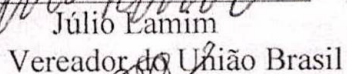 Júlio Lamim
Vereador do União Brasil